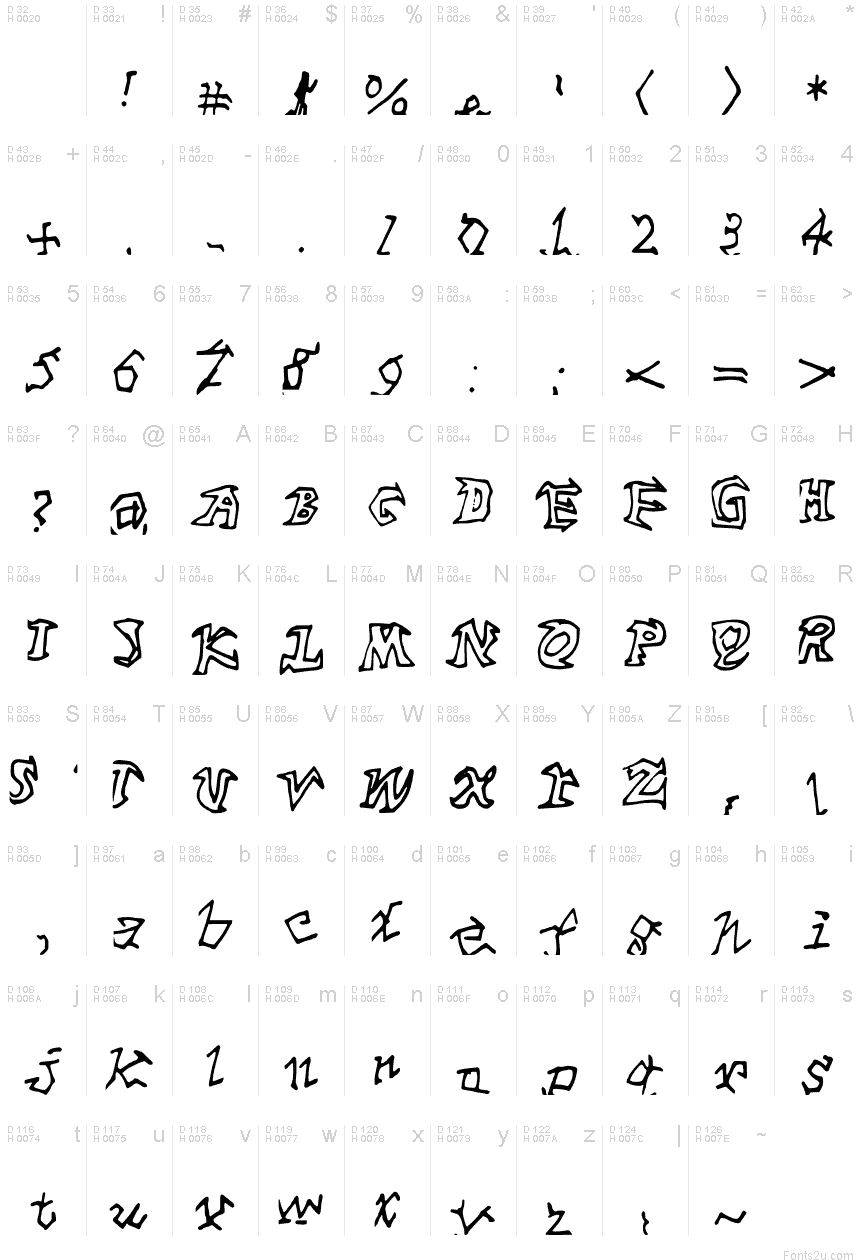 D 32 H 0020 D 33 H 0021 ! D 35 H 0023 # D 36 H 0024 $ D 37 H 0025 % D 38 H 0026 & D 39 H 0027 ' D 40 H 0028 ( D 41 H 0029 ) D 42 H 002A *
! # % ' ( ) *
D 43 H 002B + D 44 H 002C , D 45 H 002D - D 46 H 002E . D 47 H 002F / D 48 H 0030 0 D 49 H 0031 1 D 50 H 0032 2 D 51 H 0033 3 D 52 H 0034 4
+ , - . / 0 1 2 3 4
D 53 H 0035 5 D 54 H 0036 6 D 55 H 0037 7 D 56 H 0038 8 D 57 H 0039 9 D 58 H 003A : D 59 H 003B ; D 60 H 003C < D 61 H 003D = D 62 H 003E >
5 6 7 8 9 : ; < = >
D 63 H 003F ? D 64 H 0040 @ D 65 H 0041 A D 66 H 0042 B D 67 H 0043 C D 68 H 0044 D D 69 H 0045 E D 70 H 0046 F D 71 H 0047 G D 72 H 0048 H
? @ A B C D E F G H
D 73 H 0049 I D 74 H 004A J D 75 H 004B K D 76 H 004C L D 77 H 004D M D 78 H 004E N D 79 H 004F O D 80 H 0050 P D 81 H 0051 Q D 82 H 0052 R
I J K L M N O P Q R
D 83 H 0053 S D 84 H 0054 T D 85 H 0055 U D 86 H 0056 V D 87 H 0057 W D 88 H 0058 X D 89 H 0059 Y D 90 H 005A Z D 91 H 005B [ D 92 H 005C \
S T U V W X Y Z
D 93 H 005D ] D 97 H 0061 a D 98 H 0062 b D 99 H 0063 c D 100 H 0064 d D 101 H 0065 e D 102 H 0066 f D 103 H 0067 g D 104 H 0068 h D 105 H 0069 i
a b c d e f g h i
D 106 H 006A j D 107 H 006B k D 108 H 006C l D 109 H 006D m D 110 H 006E n D 111 H 006F o D 112 H 0070 p D 113 H 0071 q D 114 H 0072 r D 115 H 0073 s
j k l m n o p q r s
D 116 H 0074 t D 117 H 0075 u D 118 H 0076 v D 119 H 0077 w D 120 H 0078 x D 121 H 0079 y D 122 H 007A z D 124 H 007C | D 126 H 007E ~
t u v w x y z ~
Fonts2u.com